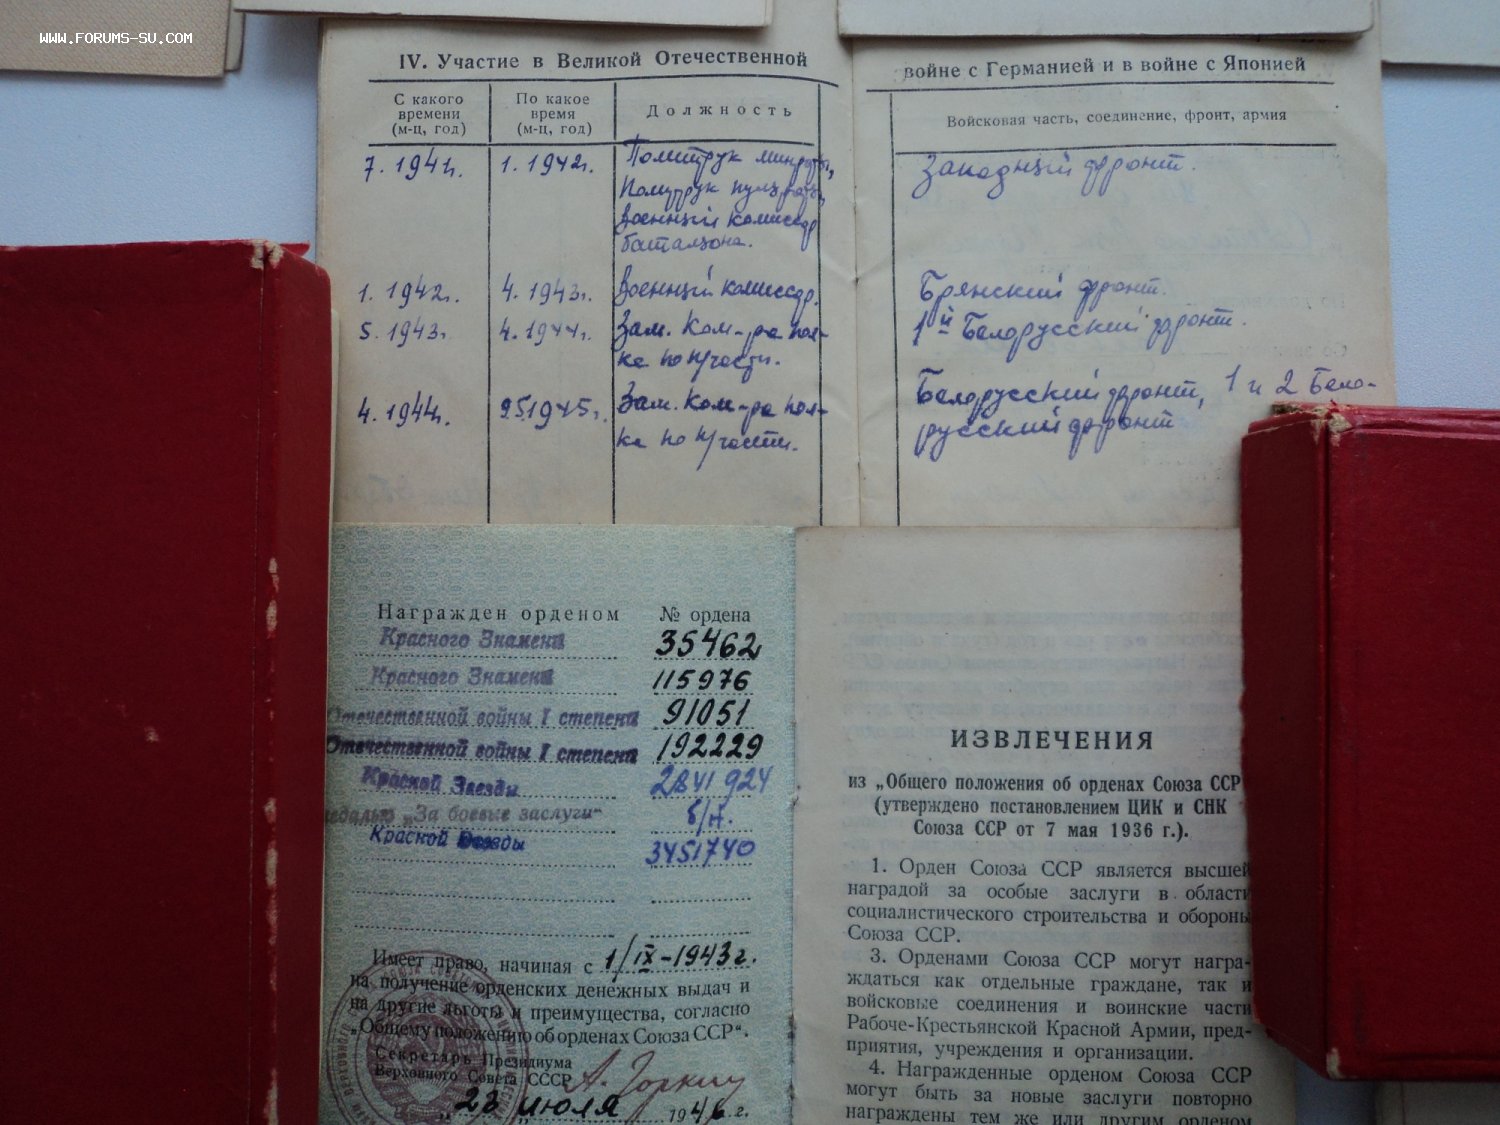 WWW.FORUMS-SU.COM
IV. Участие в Великой Отечественной
войне с Германией и в войне с Японией
С какого времени (м-ц, год)
По какое время (м-ц, год)
Должность
Войсковая часть, соединение, фронт, армия
7. 1941г. 1. 1942г. Политрук минроты, Западный фронт.
Политрук пульроты,
военный комиссар
батальона.
1. 1942г. 4. 1943г. Военный комиссар. Брянский фронт.
5. 1943г. 4. 1944г. Зам. Ком-ра пол- 1й Белорусский фронт.
ка по п/части.
4. 1944г. 1945г. Зам. Ком-ра пол- Белорусский фронт, 1 и 2 Бело-
ка по п/части. русский фронт
Награжден орденом № ордена
Красного Знамени 35462
Красного Знамени 115976
Отечественной войны I степени 91051
Отечественной войны I степени 192229
Красной Звезды 2841924
медалью „За боевые заслуги“ б/н.
Красной Звезды 3451740
Имеет право, начиная с 1/IX-1943г.
на получение орденских денежных выдач и
на другие льготы и преимущества, согласно
„Общему положению об орденах Союза ССР“.
Секретарь Президиума
Верховного Совета СССР А. Горкин
„23 июля 1946 г.
ИЗВЛЕЧЕНИЯ
из „Общего положения об орденах Союза ССР
(утверждено постановлением ЦИК и СНК
Союза ССР от 7 мая 1936 г.).
1. Орден Союза ССР является высшей
наградой за особые заслуги в области
социалистического строительства и обороны
Союза ССР.
3. Орденами Союза ССР могут награ-
ждаться как отдельные граждане, так и
войсковые соединения и воинские части
Рабоче-Крестьянской Красной Армии, пред-
приятия, учреждения и организации.
4. Награжденные орденом Союза ССР
могут быть за новые заслуги повторно
награждены тем же или другим орденом